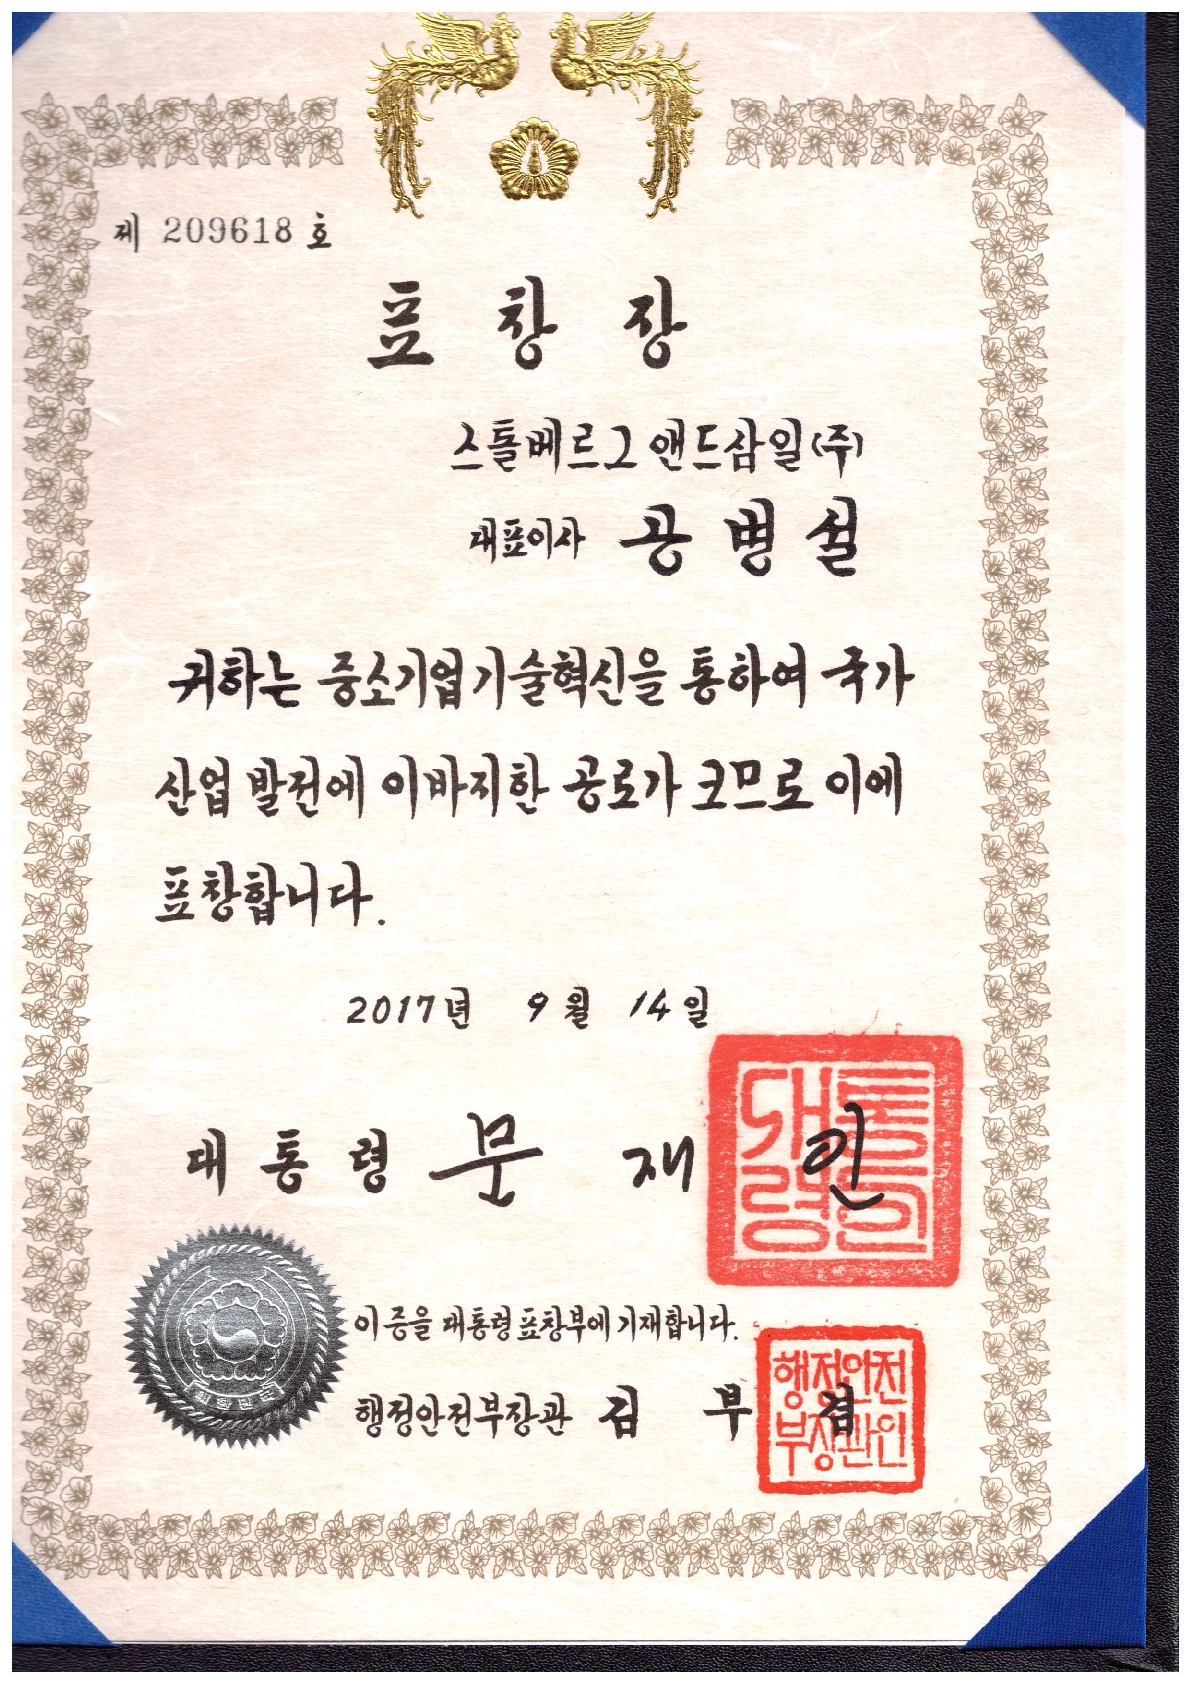 제 209618 호
표 창 장
스톨베르그 앤드삼일(주)
대표이사 공 병 설
귀하는 중소기업 기술혁신을 통하여 국가
산업 발전에 이바지한 공로가 크므로 이에
표창합니다.
2017년 9월 14일
대 통 령 문 재 인
대통령인
이 증을 대통령 표창부에 기재합니다.
행정안전부장관 김 부 겸
행정안전
부장관인
대한민국